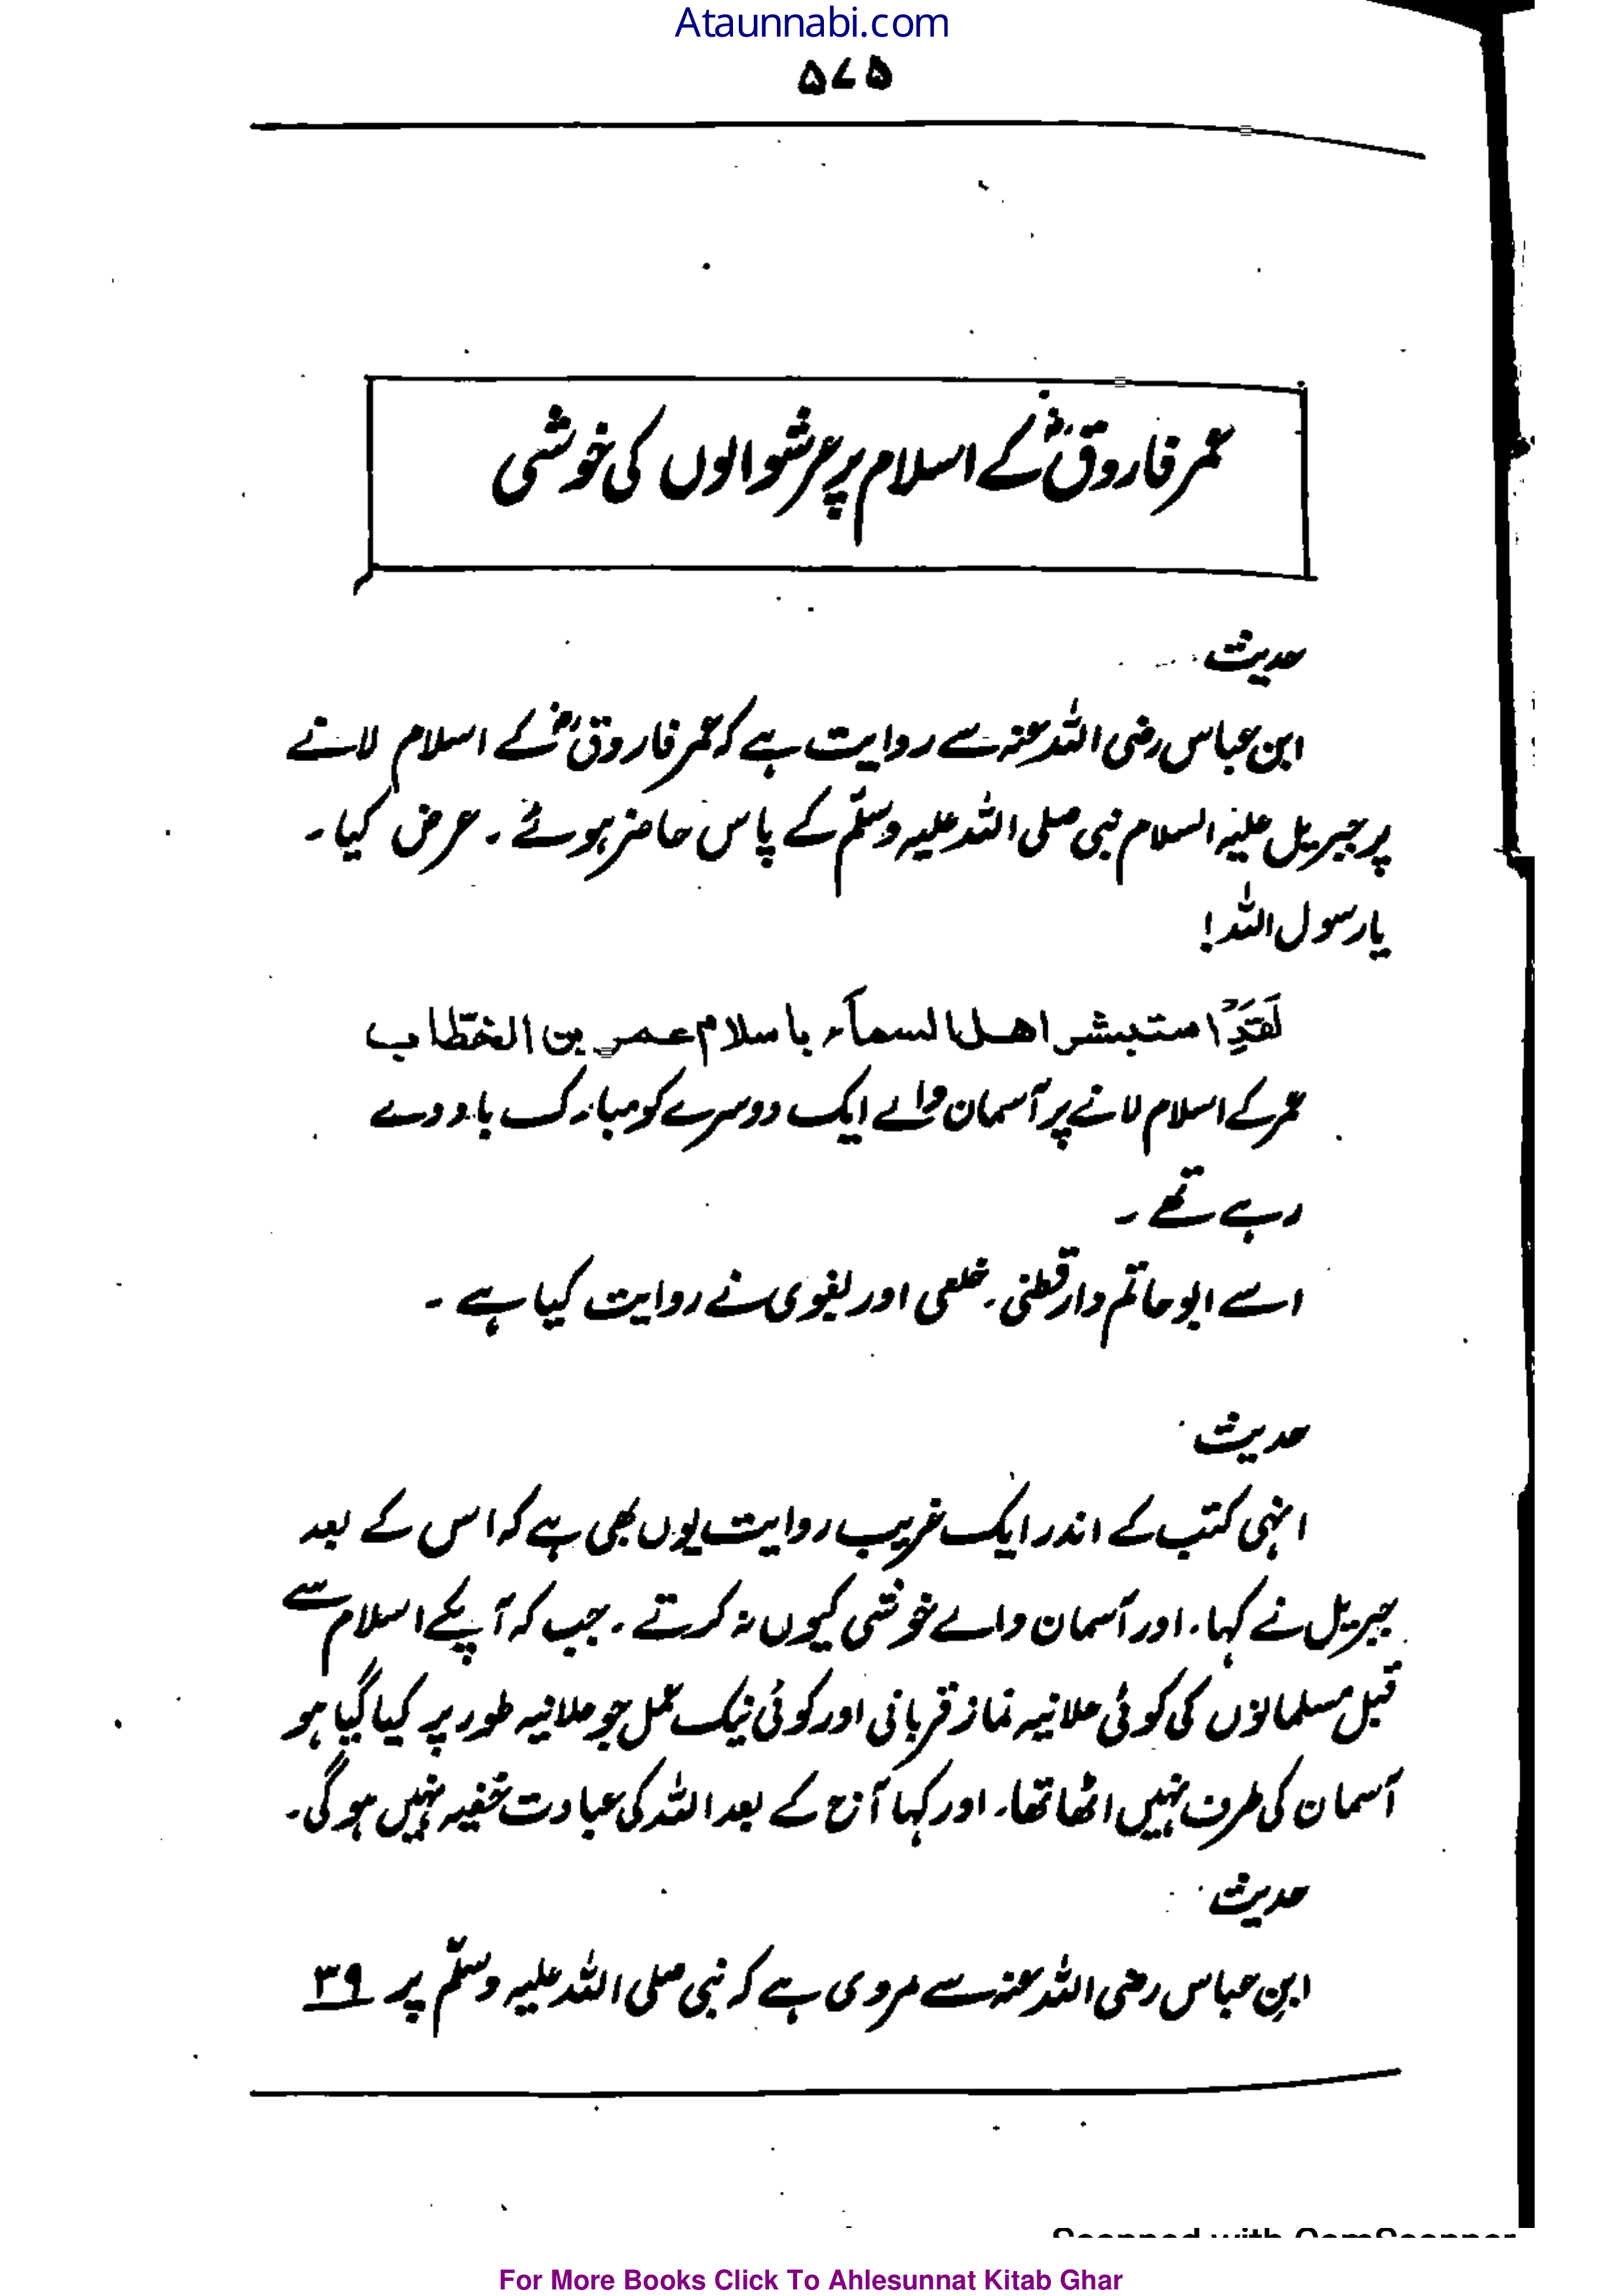 Ataunnabi.com
۵۷۵
عمر فاروقؓ کے اسلام پر عرشوالوں کی خوشی
حدیث
ابن عباس رضی اللہ عنہ سے روایت ہے کہ عمر فاروقؓ کے اسلام لانے
پر جبریل علیہ السلام نبی صلی اللہ علیہ وسلّم کے پاس حاضر ہوئے ۔ عرض کیا ۔
یا رسول اللہ !
لَقَدِ استبشر اهل السمآء باسلام عمر بن الخطّاب
عمر کے اسلام لانے پر آسمان والے ایک دوسرے کو مبارک باد دے
رہے تھے ۔
اسے ابو حاتم دارقطنی ۔ خلعی اور بغوی نے روایت کیا ہے ۔
حدیث
انہی کتب کے اندر ایک غریب روایت یوں بھی ہے کہ اس کے بعد
جبریل نے کہا ۔ اور آسمان والے خوشی کیوں نہ کرتے ۔ جب کہ آپکے اسلام سے
قبل مسلمانوں کی کوئی علانیہ نماز قربانی اور کوئی نیک عمل جو علانیہ طور پر کیا گیا ہو
آسمان کی طرف نہیں اٹھا تھا ۔ اور کہا آج کے بعد اللہ کی عبادت خفیہ نہیں ہو گی ۔
حدیث
ابن عباس رضی اللہ عنہ سے مروی ہے کہ نبی صلی اللہ علیہ وسلّم پر ۳۹
Scanned with CamScanner
For More Books Click To Ahlesunnat Kitab Ghar